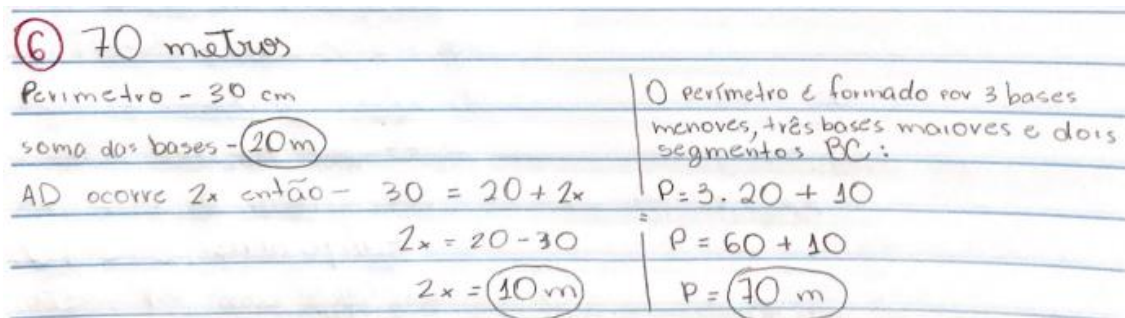 6 70 metros
Perimetro - 30 cm
soma das bases - 20 m
AD ocorre 2x então - 30 = 20 + 2x
2x = 20 - 30
2x = 10 m
O perímetro é formado por 3 bases
menores, três bases maiores e dois
segmentos BC:
P = 3 . 20 + 10
=
P = 60 + 10
P = 70 m